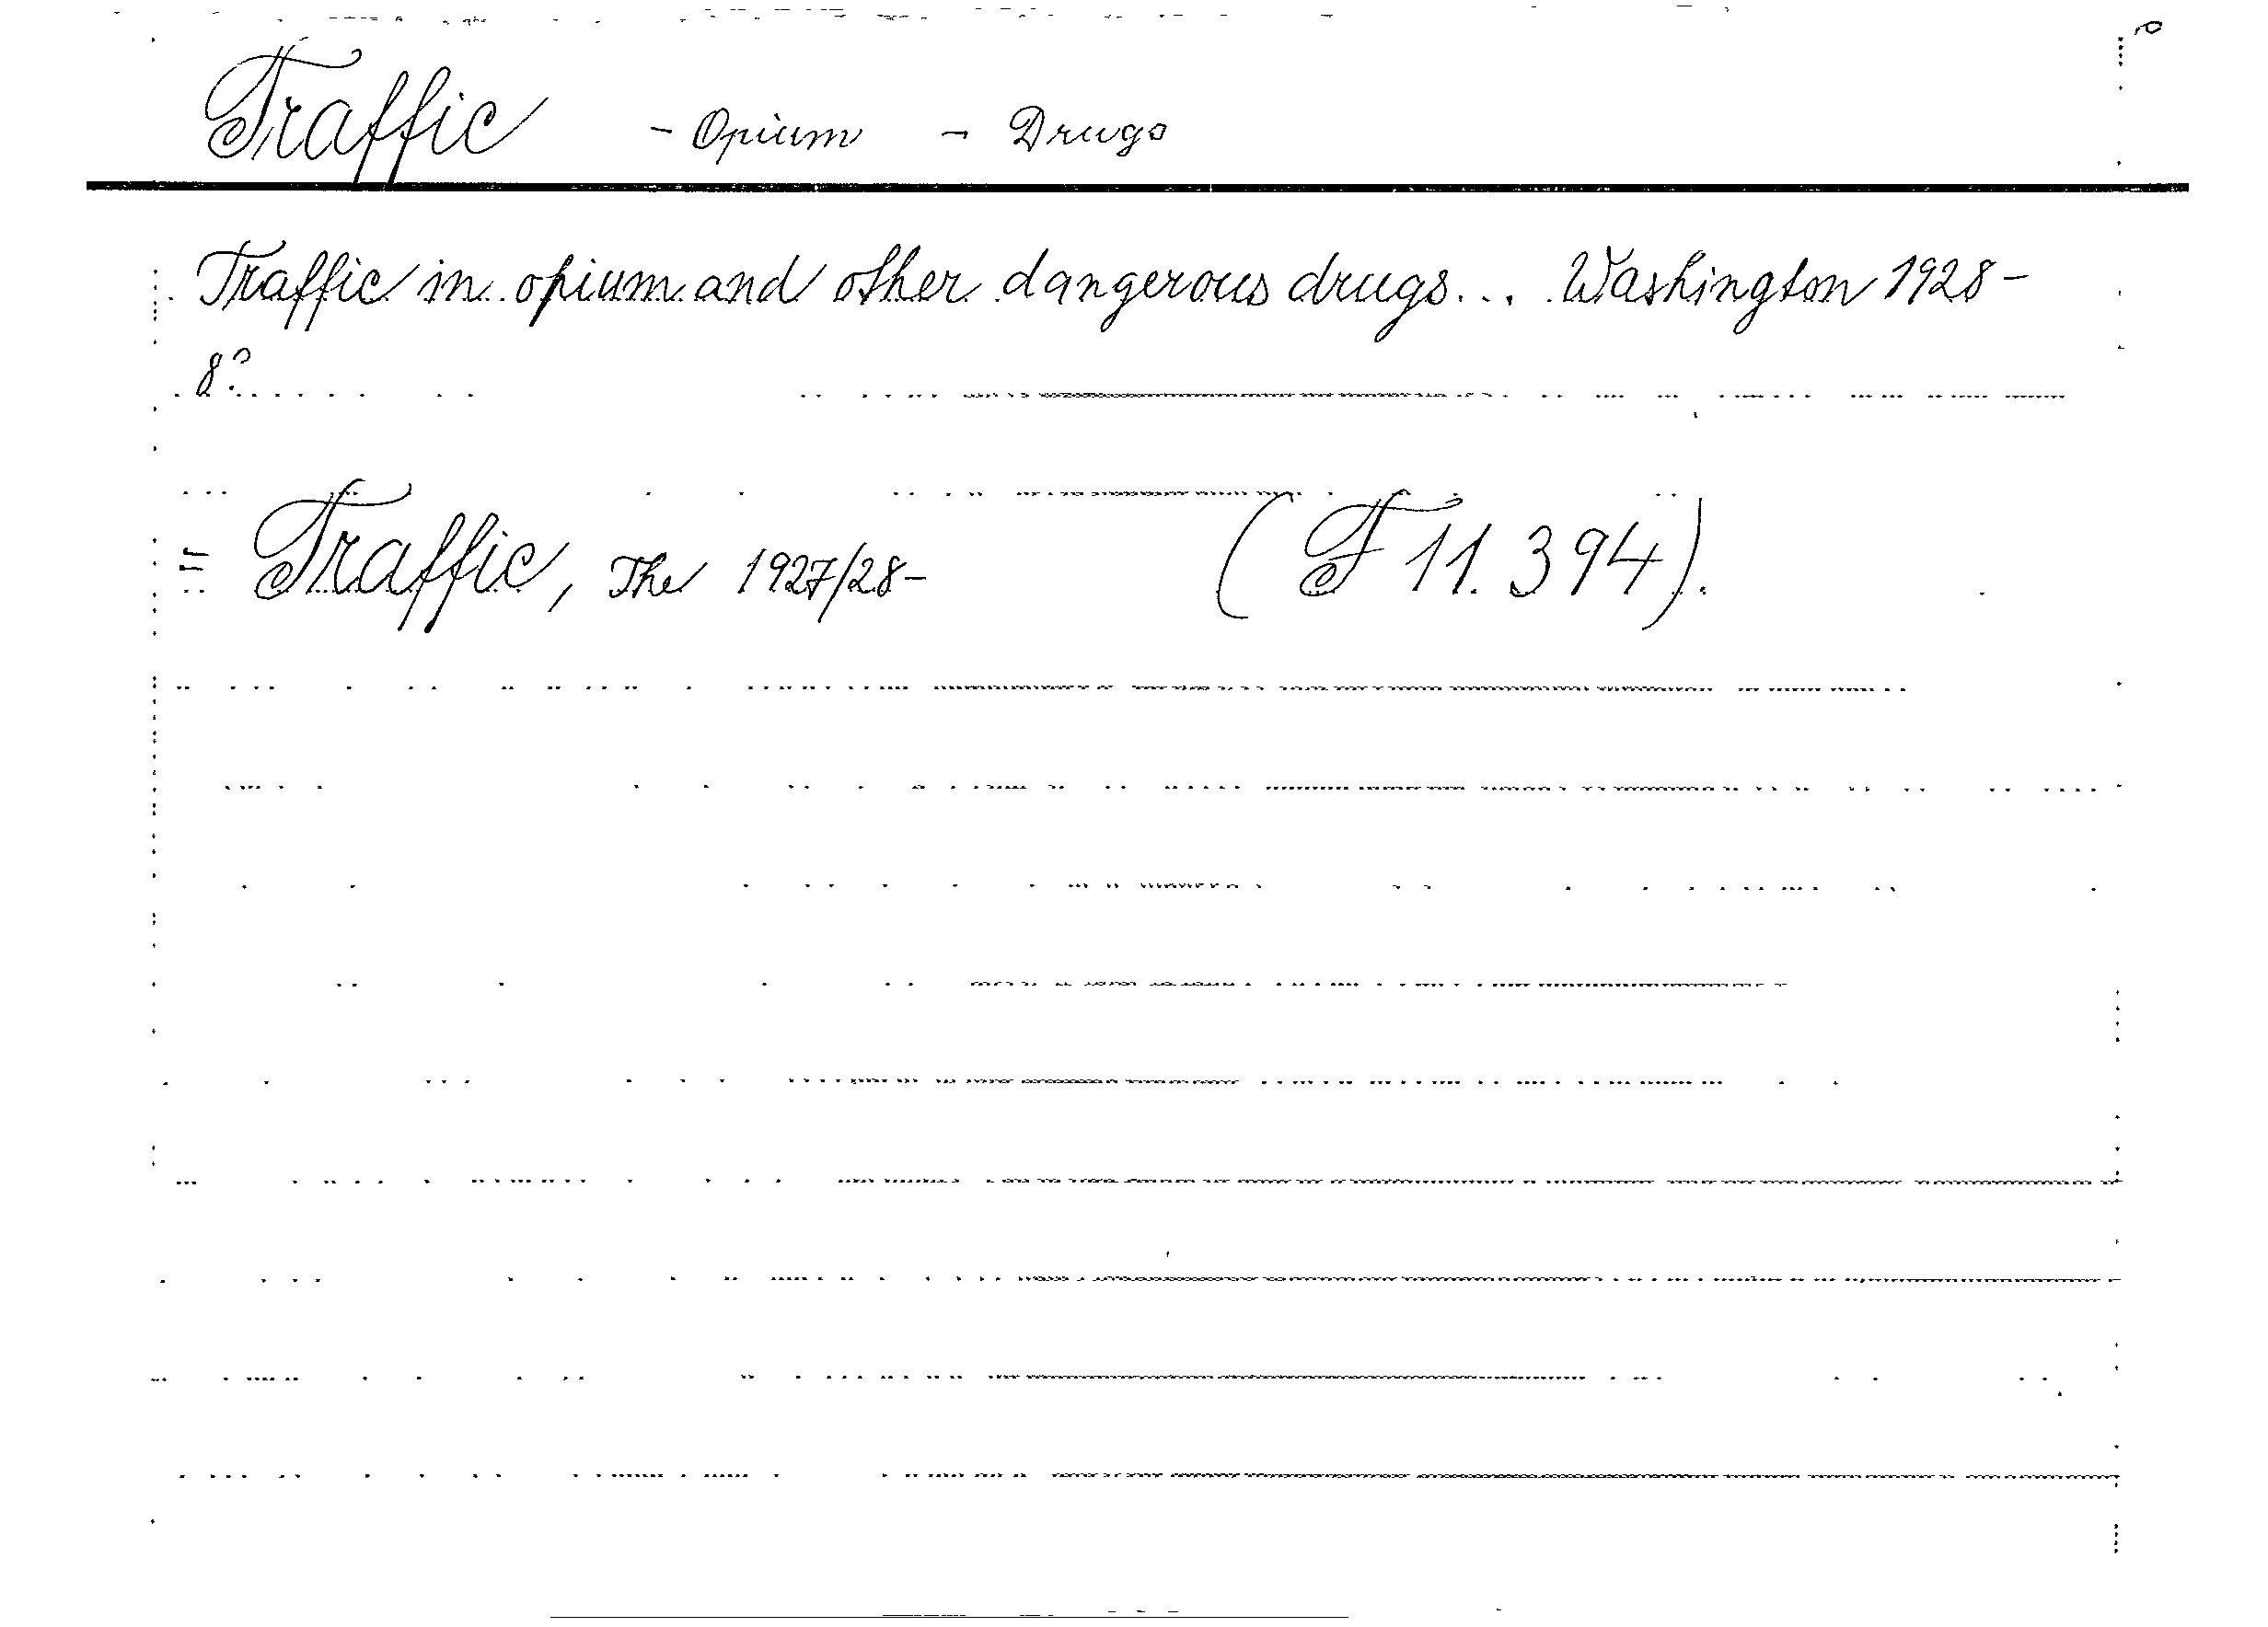 Traffic - Opium - Drugs
Traffic in opium and other dangerous drugs... Washington 1928-
8°.
= Traffic, The 1927/28- (F 11.394).